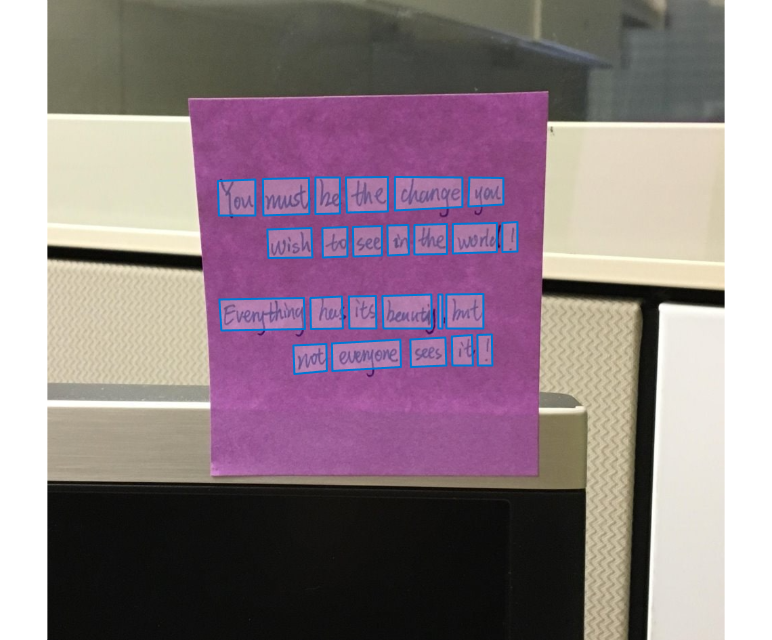 You must be the change you
wish to see in the world!
Everything has its beauty, but
not everyone sees it!